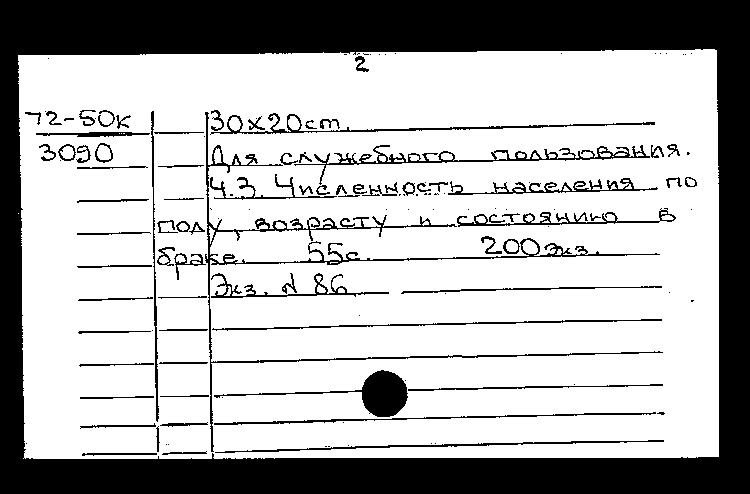 2
72-50к 30х20cm.
3090 Для служебного пользования.
Ч.3. Численность населения по
полу, возрасту и состоянию в
браке. 55с. 200экз.
Экз. N 86